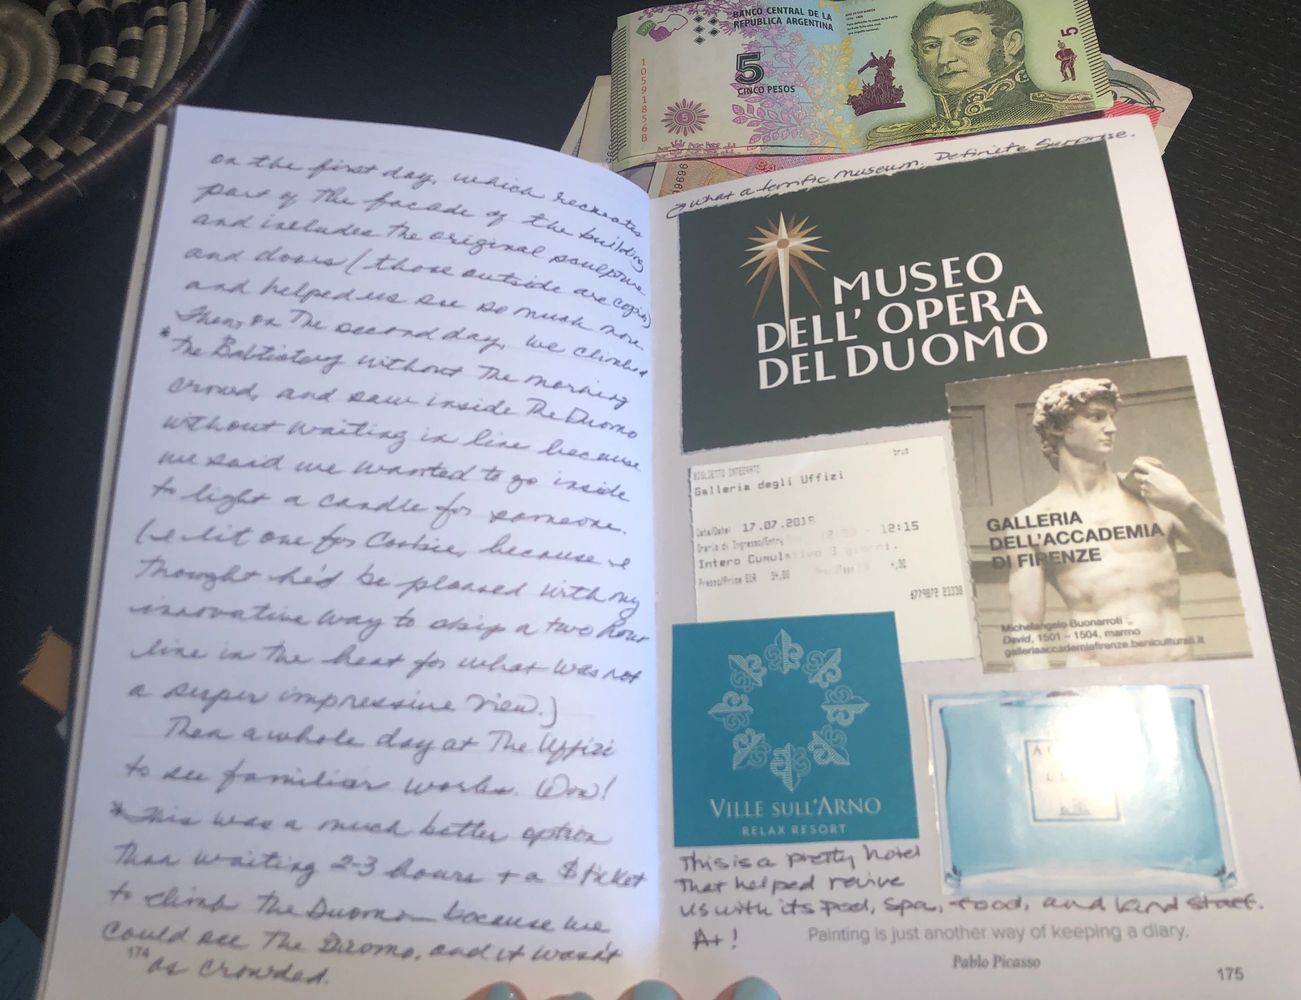 on the first day, which recreates
part of the facade of the building
and includes the original sculpture
and doors (those outside are copies)
and helped us see so much more.
Then, on the second day, we climbed
* The Babtistery without the morning
crowd, and saw inside The Duomo
without waiting in line because
we said we wanted to go inside
to light a candle for someone.
(I lit one for Cookie, because I
thought he'd be pleased with my
innovative way to skip a two hour
line in the heat for what was not
a super impressive view.)
Then a whole day at The Uffizi
to see familiar works. Wow!
* This was a much better option
than waiting 2-3 hours + a $ ticket
to climb The Duomo because we
could see The Duomo, and it wasn't
as crowded.
174
BANCO CENTRAL DE LA
REPUBLICA ARGENTINA
5
CINCO PESOS
10591856B
5
5
19696
what a terrific museum. Definite Surprise.
MUSEO
DELL' OPERA
DEL DUOMO
BIGLIETTO INTEGRATO
Galleria degli Uffizi
Data/Date: 17.07.2019
Orario di Ingresso/Entry - 12:15
Intero Cumulativo 3 giorni.
Prezzo/Price EUR 34,00 4,00
6779872 23338
GALLERIA
DELL'ACCADEMIA
DI FIRENZE
Michelangelo Buonarroti
David, 1501 – 1504, marmo
galleriaaccademiafirenze.beniculturali.it
VILLE SULL'ARNO
RELAX RESORT
This is a pretty hotel
that helped revive
us with its pool, spa, food, and kind staff.
A+!
Painting is just another way of keeping a diary.
Pablo Picasso
175